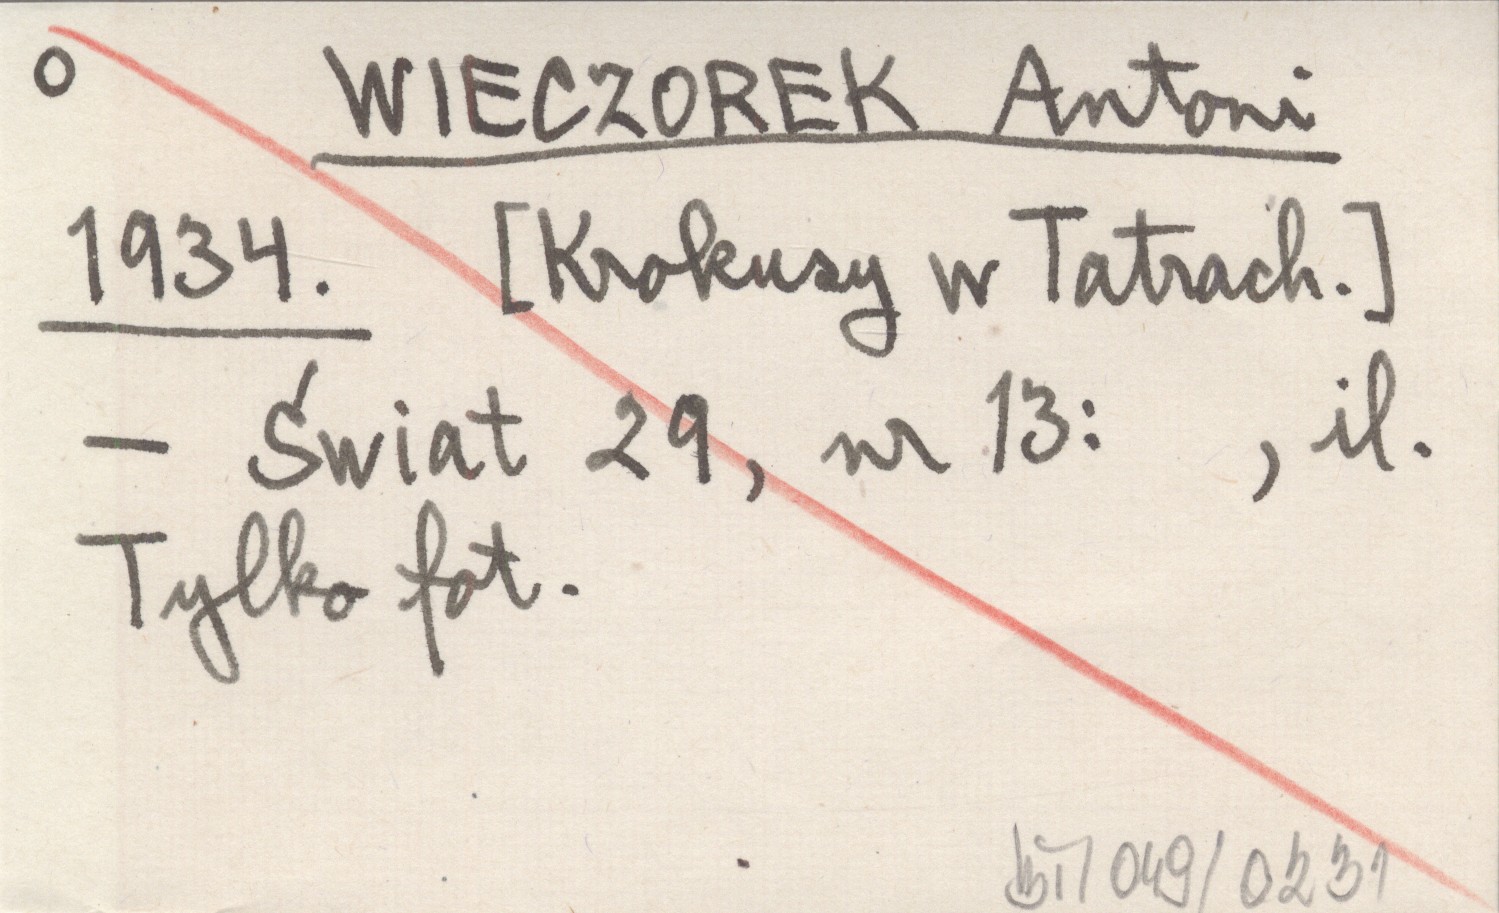 o WIECZOREK Antoni
1934. [Krokusy w Tatrach.]
— Świat 29, nr 13: , il.
Tylko fot.
049/0231